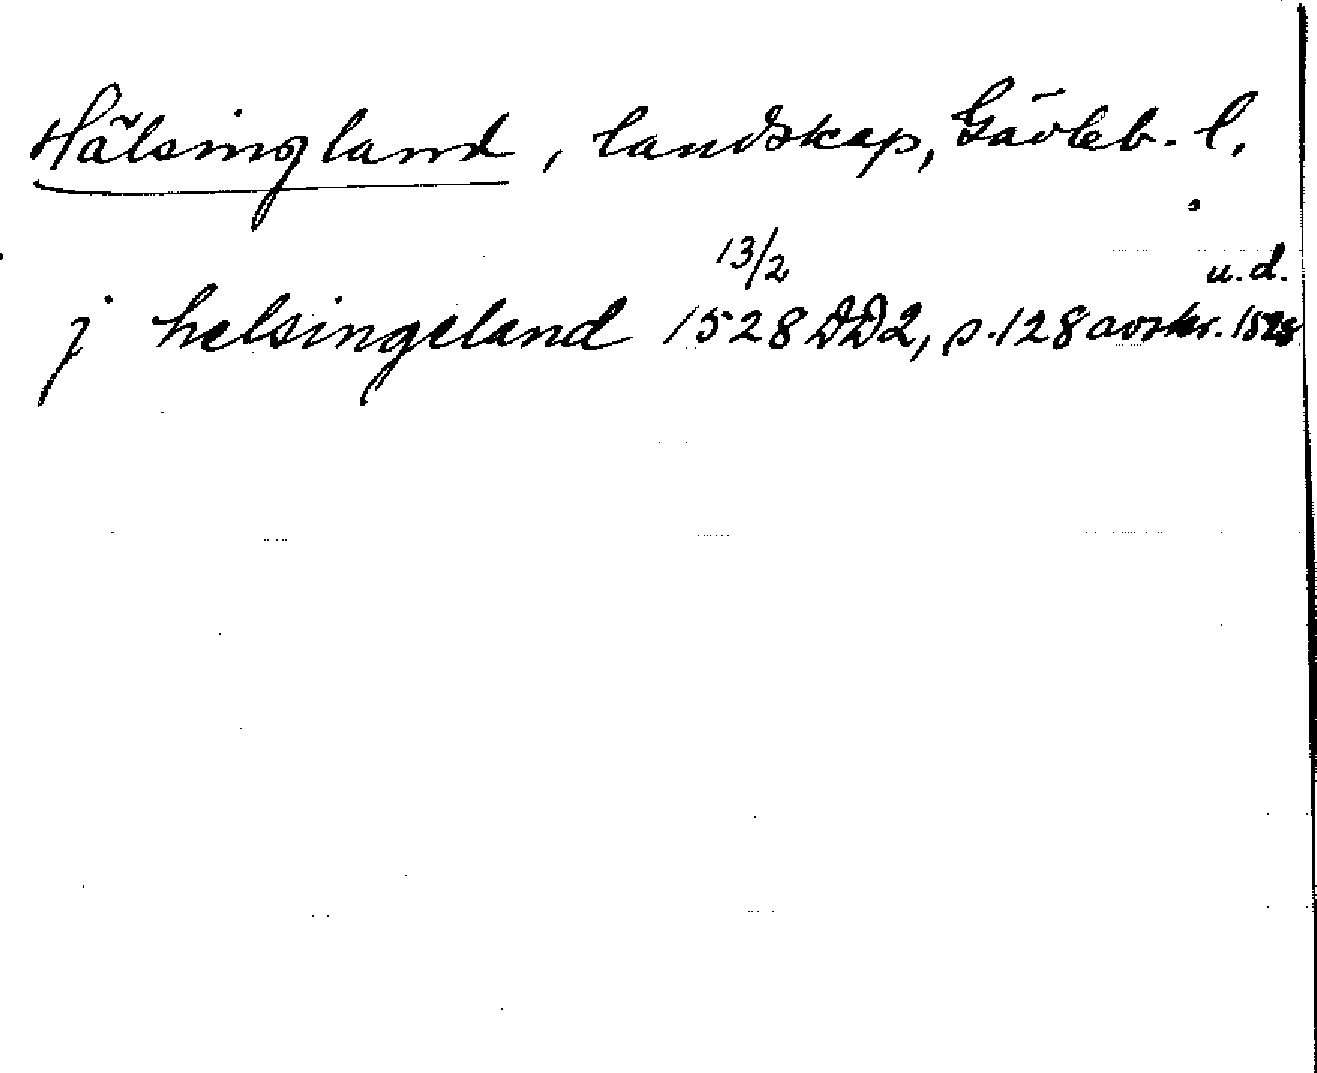 Hälsingland, landskap, Gävleb. l.
13/2 u.d.
j helsingeland 1528 DD2, s. 128 avskr. 1528